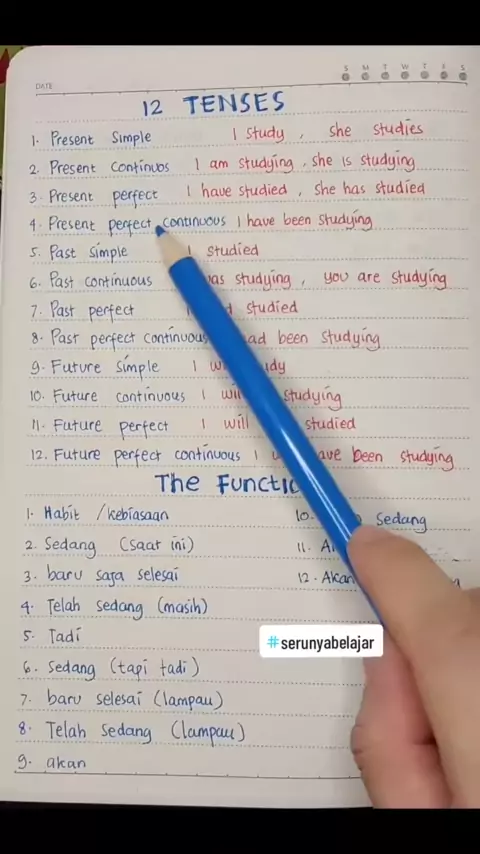 DATE
S M T W T F S
12 TENSES
1. Present Simple I study , she studies
2. Present Continuos I am studying , she is studying
3. Present perfect I have studied , she has studied
4. Present perfect continuous I have been studying
5. Past simple I studied
6. Past continuous was studying , you are studying
7. Past perfect I studied
8. Past perfect continuous had been studying
9. Future simple I
10. Future continuous I studying
11. Future perfect I will studied
12. Future perfect continuous I have been studying
The
1. Habit /kebiasaan
2. Sedang (saat ini)
3. baru saja selesai
4. Telah sedang (masih)
5. Tadi
6. Sedang (tapi tadi)
7. baru selesai (lampau)
8. Telah sedang (lampau)
9. akan
10. Sedang
11.
12. Akan
#serunyabelajar